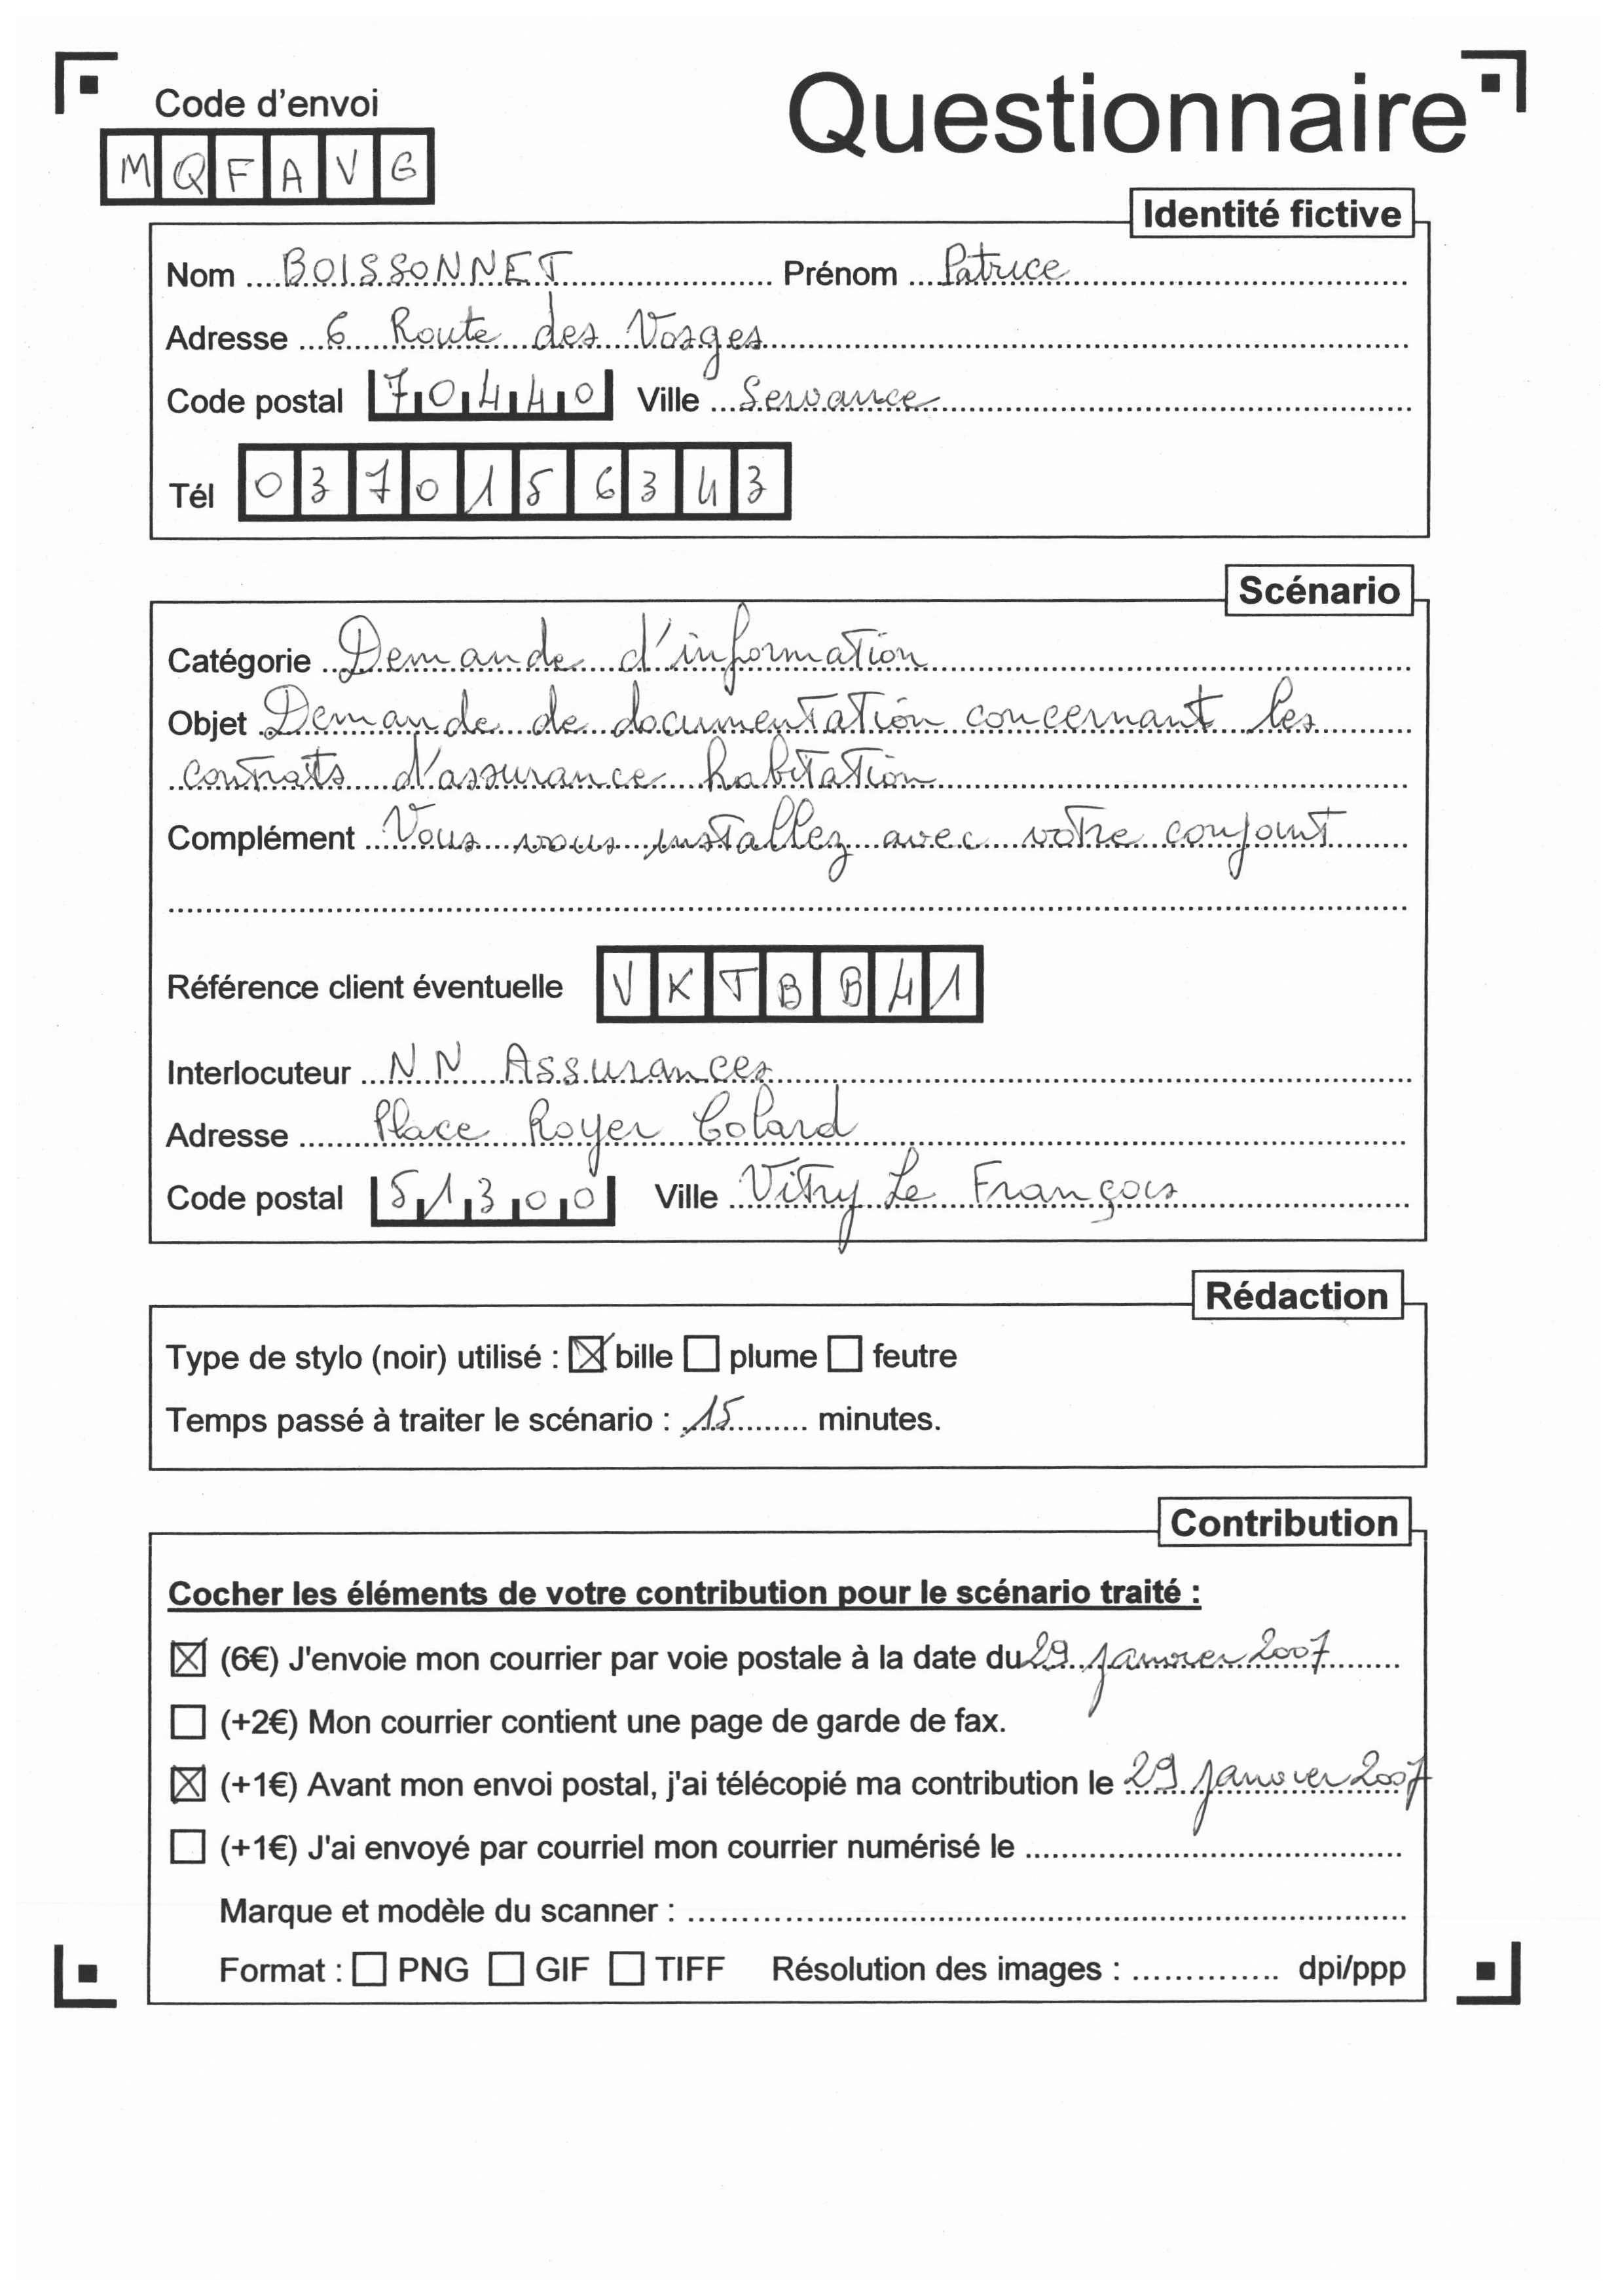 Code d'envoi
Questionnaire
MQFAVG
Identité fictive
Nom BOISSONNET Prénom Patrice
Adresse 6 Route des Vosges
Code postal 70440 Ville Servance
Tél 0370156343
Scénario
Catégorie Demande d'information
Objet Demande de documentation concernant les
contrats d'assurance habitation
Complément Vous vous installez avec votre conjoint
Référence client éventuelle VKTBB41
Interlocuteur NN Assurances
Adresse Place Royer Colard
Code postal 51300 Ville Vitry Le François
Rédaction
Type de stylo (noir) utilisé : ☒ bille ☐ plume ☐ feutre
Temps passé à traiter le scénario : 15 minutes.
Contribution
Cocher les éléments de votre contribution pour le scénario traité :
☒ (6€) J'envoie mon courrier par voie postale à la date du 29 janvier 2007
☐ (+2€) Mon courrier contient une page de garde de fax.
☒ (+1€) Avant mon envoi postal, j'ai télécopié ma contribution le 29 janvier 2007
☐ (+1€) J'ai envoyé par courriel mon courrier numérisé le
Marque et modèle du scanner :
Format : ☐ PNG ☐ GIF ☐ TIFF Résolution des images : dpi/ppp